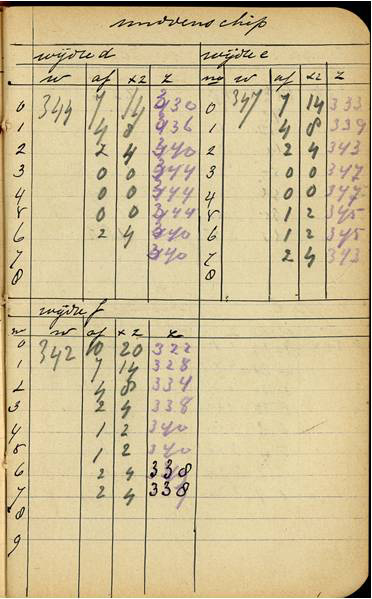 middenschip
wijdte d wijdte e
w af x2 z no w af x2 z
0 344 7 14 330 0 347 7 14 333
1 4 8 336 1 4 8 339
2 2 4 340 2 2 4 343
3 0 0 344 3 0 0 347
4 0 0 344 4 0 0 347
5 0 0 344 5 1 2 345
6 2 4 340 6 1 2 345
7 340 7 2 4 343
8 8
wijdte f
no w af x2 z
0 342 10 20 322
1 7 14 328
2 4 8 334
3 2 4 338
4 1 2 340
5 1 2 340
6 2 4 338
7 2 4 338
8
9